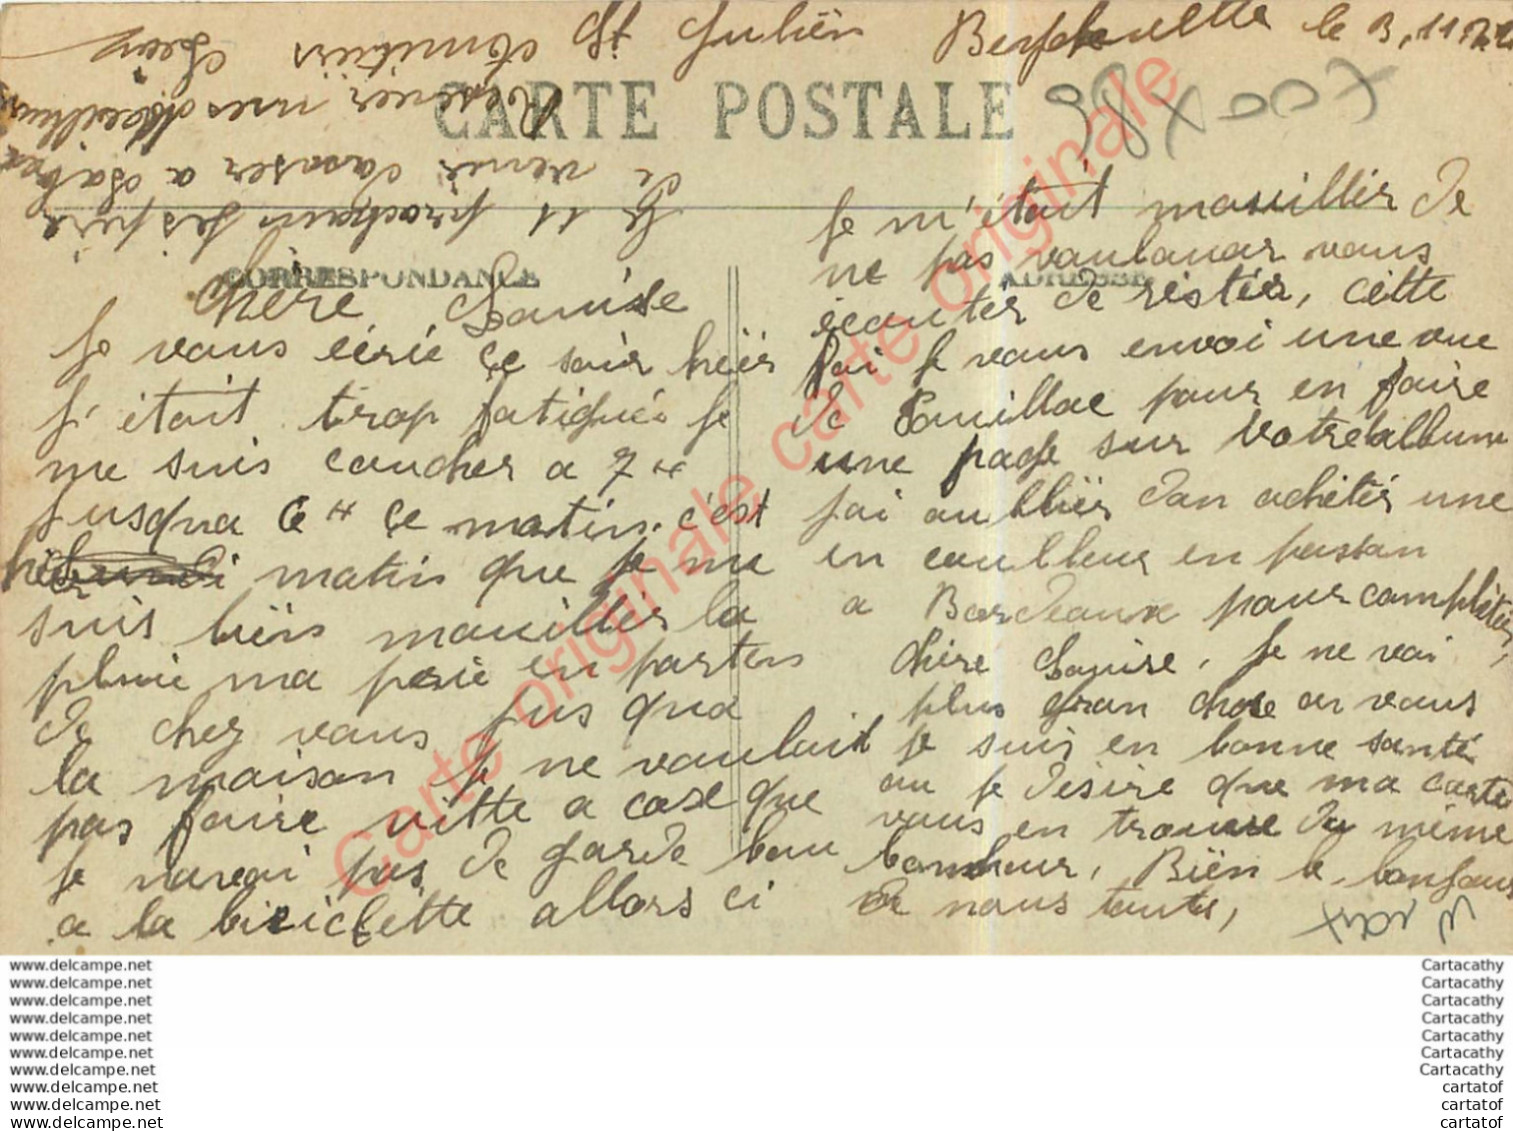 St Julien Beychevelle le 3.11.22
CARTE POSTALE
CORRESPONDANCE
ADRESSE
Chère Louise
Je vous écrie ce soir hier
J'était trop fatigué Je
me suis coucher a 7 H
Jusqua 6 H ce matin. c'est
hier matin que je me
suis bien mouiller la
pluie ma prie en parten
de chez vous jus qua
la maison Je ne voulait
pas faire vitte a cose que
Je navai pas de garde bou
a la biciclette allors ci
Je n'était mouiller de
ne pas voulouar vous
ecouter de rester, cette
foi Je vous envoi une vue
de Pauillac pour en faire
une page sur Votre album
jai oublier dan acheter une
en coulleur en passan
a Bordeaux pour completer,
chère Louise, Je ne voi
plus gran chose a vous
Je suis en bonne santé
ou Je désire que ma carte
vous en trouve du même
bonheur, Bien le bonjour
a nous toute,
Le 11 prochain J'espère
de venir danser a
Resevier mes Meilleur
Amitiés
Carte originale carte originale
Carte originale carte originale
www.delcampe.net
www.delcampe.net
www.delcampe.net
www.delcampe.net
www.delcampe.net
www.delcampe.net
www.delcampe.net
www.delcampe.net
www.delcampe.net
www.delcampe.net
Cartacathy
Cartacathy
Cartacathy
Cartacathy
Cartacathy
Cartacathy
Cartacathy
cartatof
cartatof
cartatof